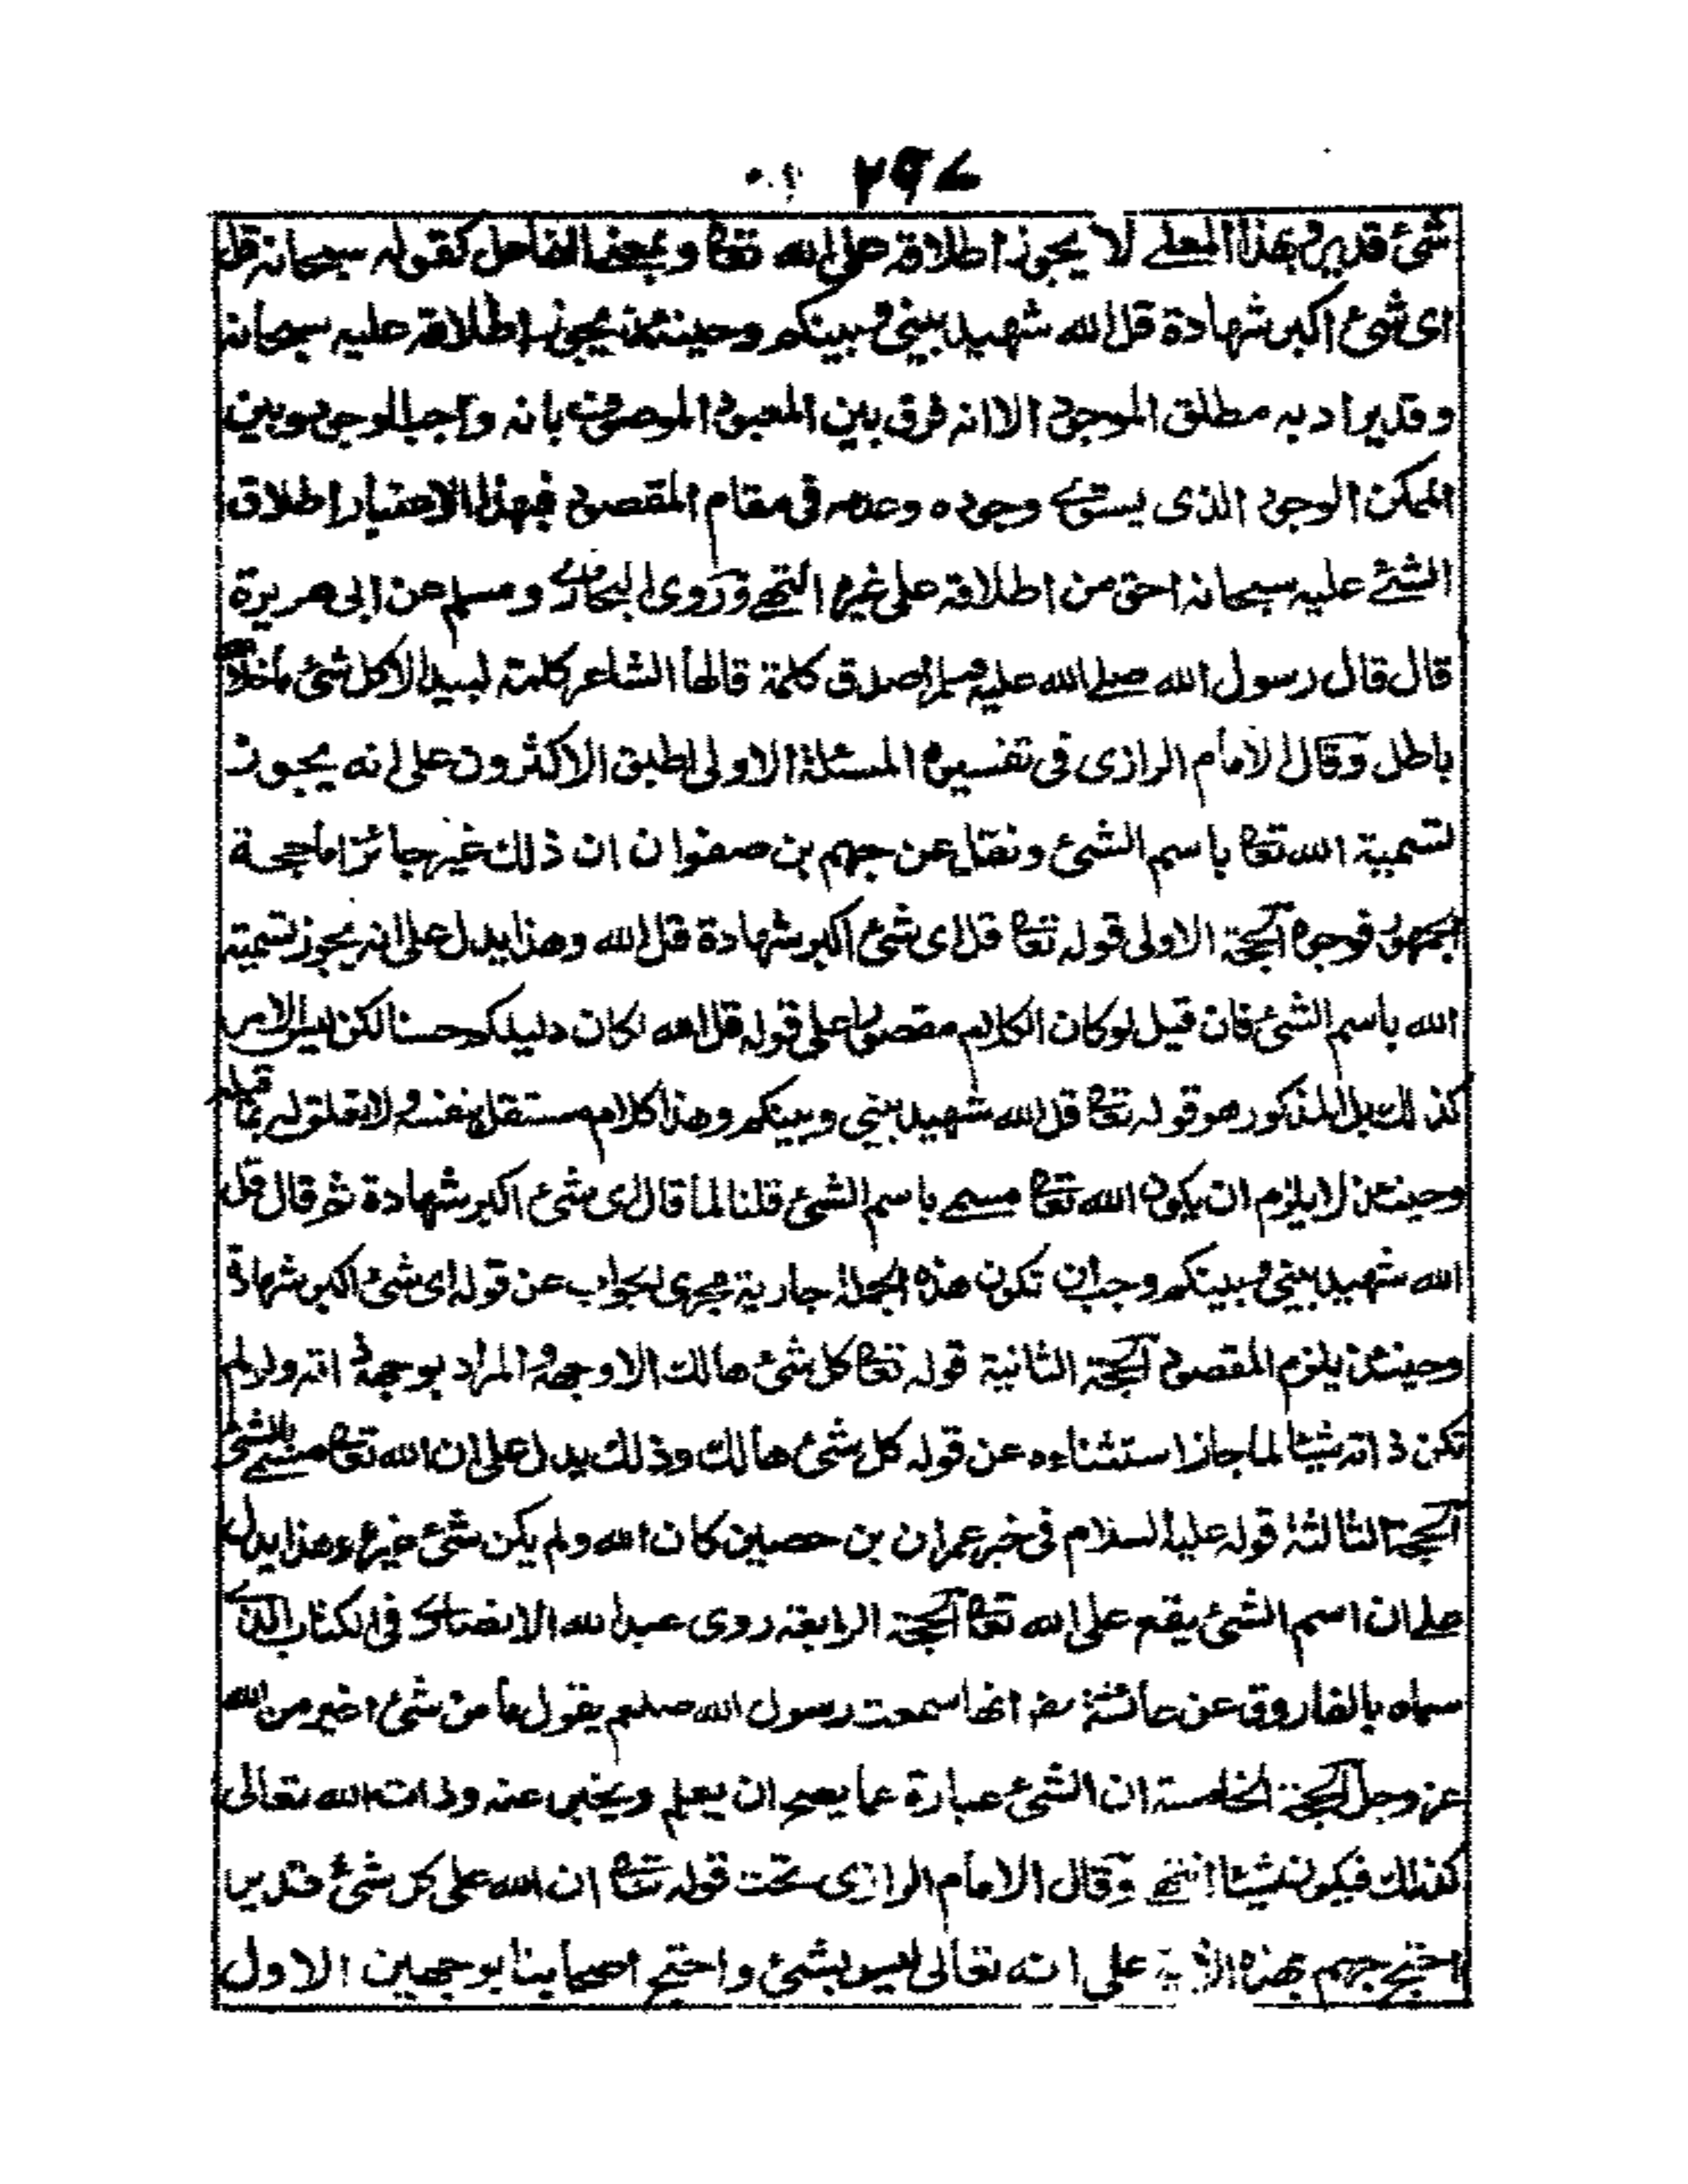 ٢٩٧
شئ قدير وبهذا المعنے لا يجوز اطلاقه على الله تعا وبمعنا الفاعل كقوله سبحانه قل
اى شئ اكبر شهادة قل الله شهيد بينى وبينكم وحينئذ يجوز اطلاقه عليه سبحانه
وقد يراد به مطلق الموجود الا انه فرق بين المعبود الموصوف بانه واجب الوجود وبين
الممكن الوجود الذى يستوى وجوده وعدمه فى مقام المقصود فبهذا الاعتبار اطلاق
الشئے عليه سبحانه احق من اطلاقه على غيره انتهے وروى البخارى ومسلم عن ابى هريرة
قال قال رسول الله صلے الله عليه وسلم اصدق كلمة قالها الشاعر كلمة لبيد الا كل شئ ما خلا الله
باطل وقال الامام الرازى فى تفسيره المسئلة الاولى اطبق الاكثرون على انه يجوز
تسمية الله تعا باسم الشئ ونقل عن جهم بن صفوان ان ذلك غير جائز اما حجة
الجمهور فوجوه الحجة الاولى قوله تعا قل اى شئ اكبر شهادة قل الله وهذا يدل على انه يجوز تسمية
الله باسم الشئ فان قيل لو كان الكلام مقصورا على قوله قل الله لكان دليلكم حسنا لكن ليس الامر
كذلك بل المذكور هو قوله تعا قل الله شهيد بينى وبينكم وهذا كلام مستقل بنفسه ولا تعلق له بما قبله
وحينئذ لا يلزم ان يكون الله تعا مسمے باسم الشئ قلنا لما قال اى شئ اكبر شهادة ثم قال قل
الله شهيد بينى وبينكم وجب ان تكون هذه الجملة جارية مجرى الجواب عن قوله اى شئ اكبر شهادة
وحينئذ يلزم المقصود الحجة الثانية قوله تعا كل شئ هالك الا وجهه والمراد بوجهه ذاته ولو لم
تكن ذاته شيئا لما جاز استثناءه عن قوله كل شئ هالك وذلك يدل على ان الله تعا مسمے بالشئ
الحجة الثالثة قوله عليه السلام فى خبر عمران بن حصين كان الله ولم يكن شئ غيره وهذا يدل
علے ان اسم الشئ يقع على الله تعا الحجة الرابعة روى عبد الله الانصارى فى الكتاب الذى
سماه بالفاروق عن عائشة رض انها سمعت رسول الله صلعم يقول ما من شئ اغير من الله
عز وجل الحجة الخامسة ان الشئ عبارة عما يصح ان يعلم ويخبر عنه وذات الله تعالى
كذلك فيكون شيئا انتهے وقال الامام الرازى تحت قوله تعا ان الله على كل شئ قدير
احتج جهم بهذه الآية على انه تعالى ليس بشئ واحتج اصحابنا بوجهين الاول